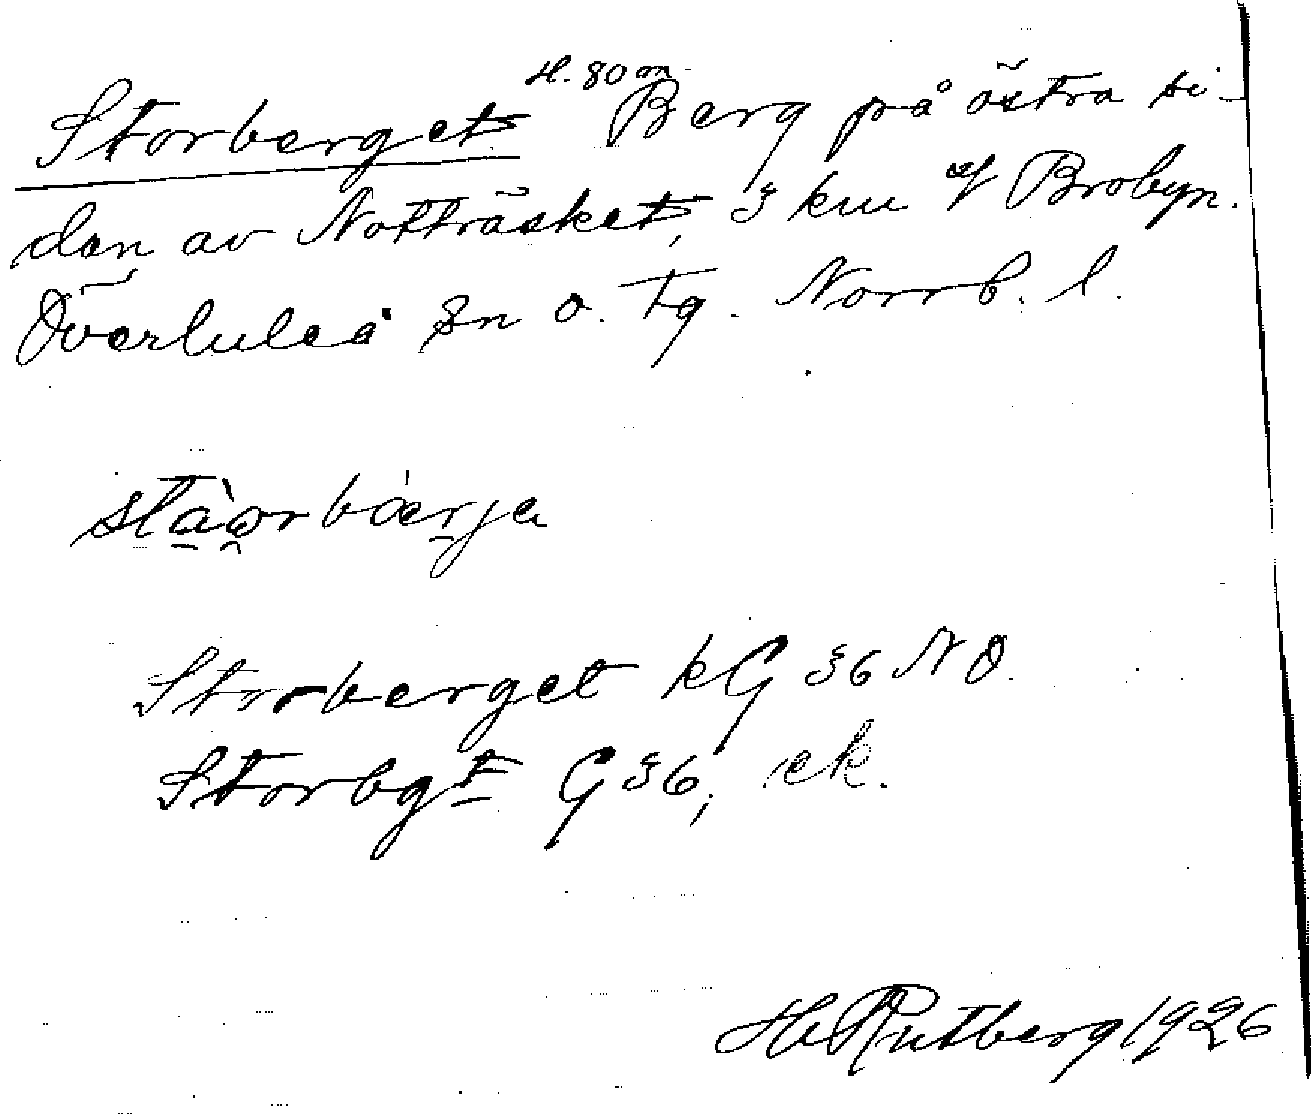 H. 80 m
Storberget Berg på östra si-
dan av Notträsket, 3 km Brobyn.
Överluleå sn o. tg. Norrb. l.
Storberget kG 36 NO.
Storbgt G 36, ek.
H Rutberg 1926